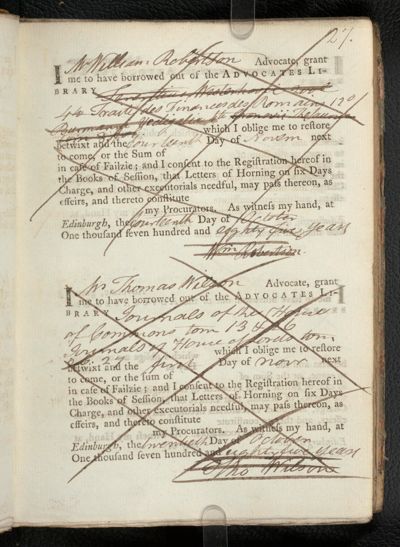 127.
I Mr William Robertson Advocate, grant
me to have borrowed out of the ADVOCATES LI-
BRARY
44 Traité des Finances des Romains 120
which I oblige me to restore
betwixt and the fourteenth Day of Novem next
to come, or the Sum of
in case of Failzie; and I consent to the Registration hereof in
the Books of Session, that Letters of Horning on six Days
Charge, and other executorials needful, may pass thereon, as
effeirs, and thereto constitute
my Procurators. As witness my hand, at
Edinburgh, the fourteenth Day of October
One thousand seven hundred and eighty five years
Wm Robertson
I Mr Thomas Wilson Advocate, grant
me to have borrowed out of the ADVOCATES LI-
BRARY Journals of the House
of Commons tom 1 3 4 & 6
Journals of House of Lords tom.
which I oblige me to restore
betwixt and the first Day of Novr next
to come, or the sum of
in case of Failzie; and I consent to the Registration hereof in
the Books of Session, that Letters of Horning on six Days
Charge, and other executorials needful, may pass thereon, as
effeirs, and thereto constitute
my Procurators. As witness my hand, at
Edinburgh, the twentieth Day of October
One thousand seven hundred and eighty five years
Tho Wilson